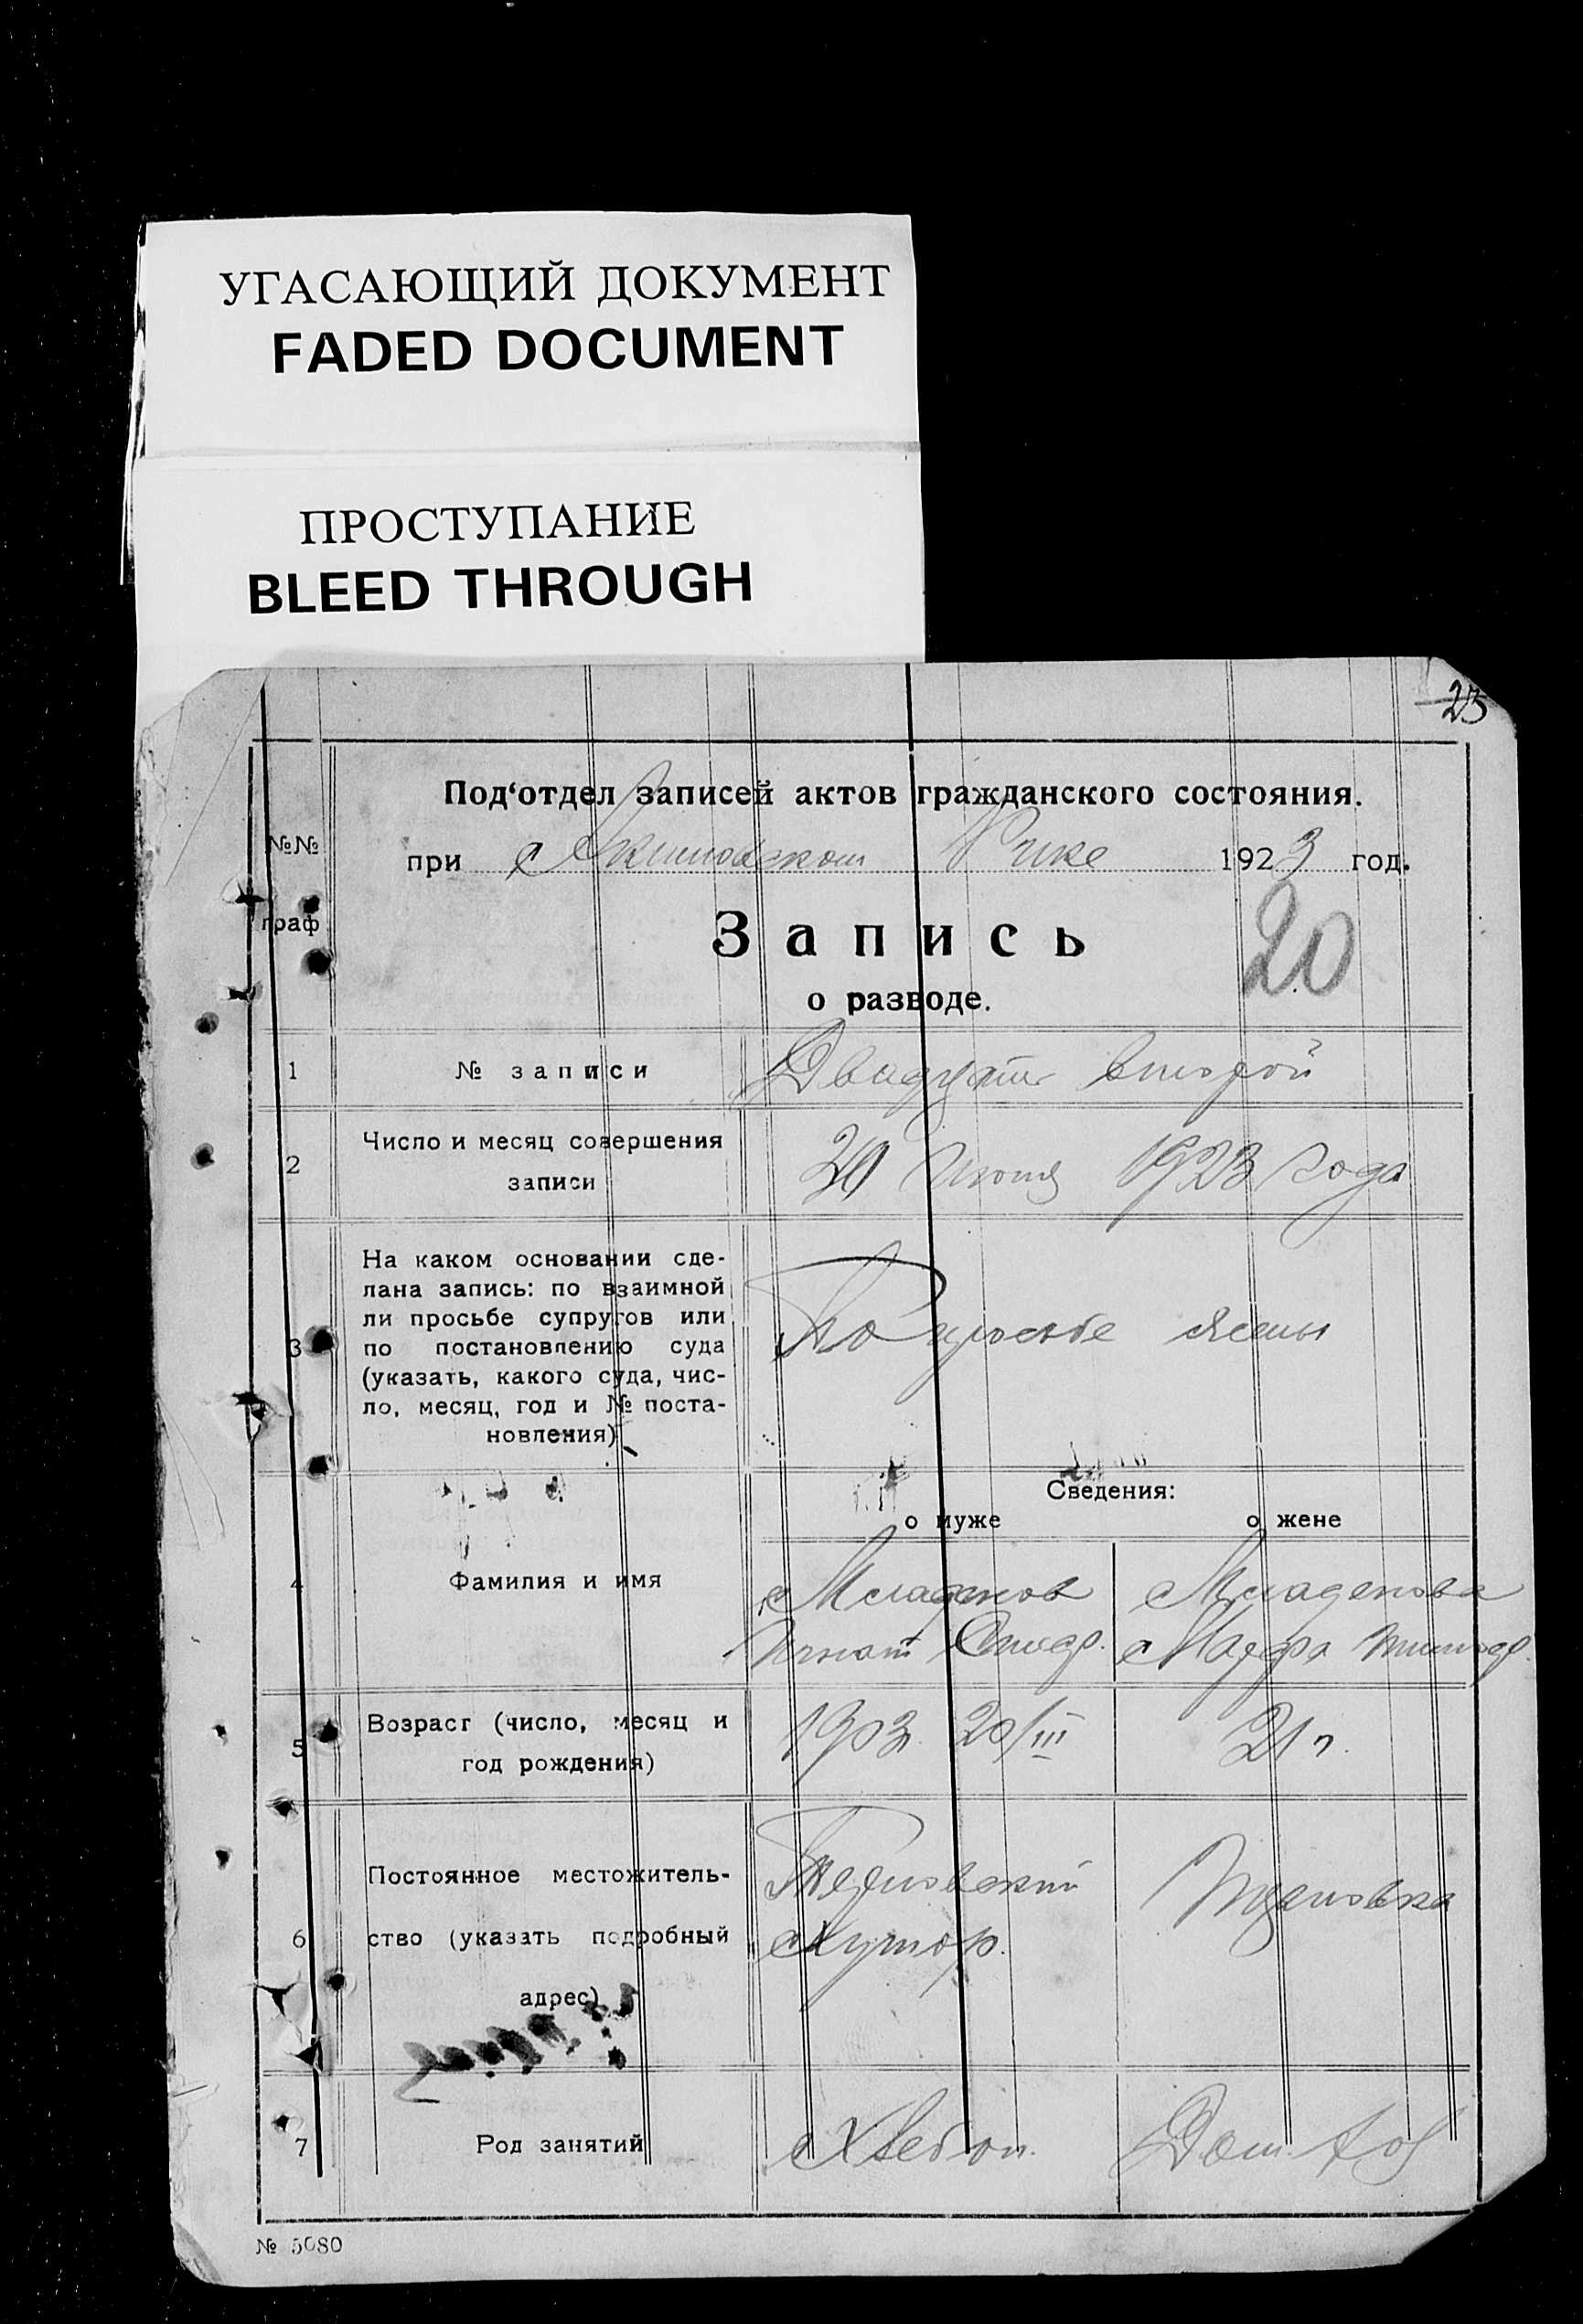 УГАСАЮЩИЙ ДОКУМЕНТ
FADED DOCUMENT
ПРОСТУПАНИЕ
BLEED THROUGH
23
Под‘отдел записей актов гражданского состояния.
при Акимовском Рике 1923 год.
№№
граф
Запись
о разводе.
20
1 № записи Двадцать второй
2 Число и месяц совершения
записи
30 Июня 1923 года
3 На каком основании сде-
лана запись: по взаимной
ли просьбе супругов или
по постановлению суда
(указать, какого суда, чис-
ло, месяц, год и № поста-
новления)
По просьбе жены
Сведения:
о муже о жене
4 Фамилия и имя
Младенов Младенова
Игнат Марфа
5 Возраст (число, месяц и
год рождения)
1903 20/III 21 г.
6 Постоянное местожитель-
ство (указать подробный
адрес)
Хутор.
7 Род занятий Хлебоп. Дом.
№ 5080